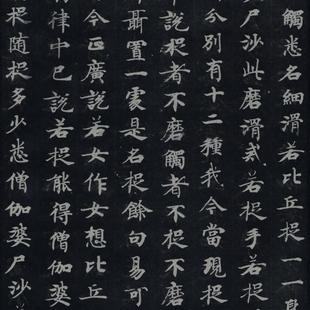 觸悉名細滑若比丘捉一一
尸沙此磨滑戒若捉手若捉
分別有十二種我今當現捉
說捉者不磨觸者不捉不磨
聶置一處是名捉餘句易可
今正廣說若女作女想比丘
律中已說若捉能得僧伽婆
捉隨捉多少悉僧伽婆尸沙